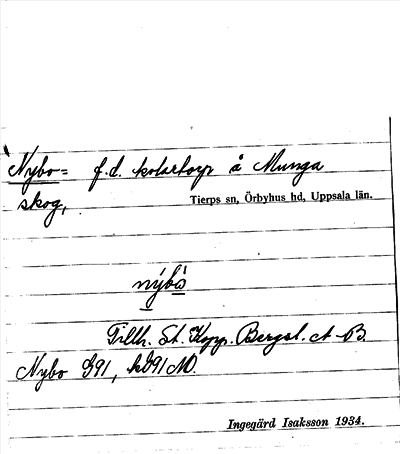 Nybo = f.d. kolartorp å Munga
skog,
Tierps sn, Örbyhus hd, Uppsala län.
nýbò
Tillh. St. Kopp. Bergsl. A-B.
Nybo G91, kG91 NO
Ingegärd Isaksson 1934.